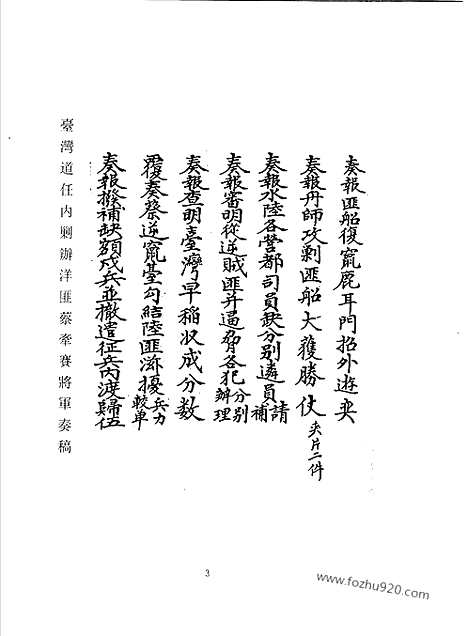 奏報匪船復竄鹿耳門招外遊奕
奏報舟師攻剿匪船大獲勝仗夾片二件
奏報水陸各營都司員缺分別遴員請補
奏報審明從逆賊匪并逼脅各犯分別辦理
奏報查明臺灣早稻收成分數
覆奏蔡逆竄臺勾結陸匪滋擾兵力較单
奏報撥補缺額戍兵並撤遣征兵內渡歸伍
臺灣道任內剿辦洋匪蔡牽賽將軍奏稿
3
www.fozhu920.com